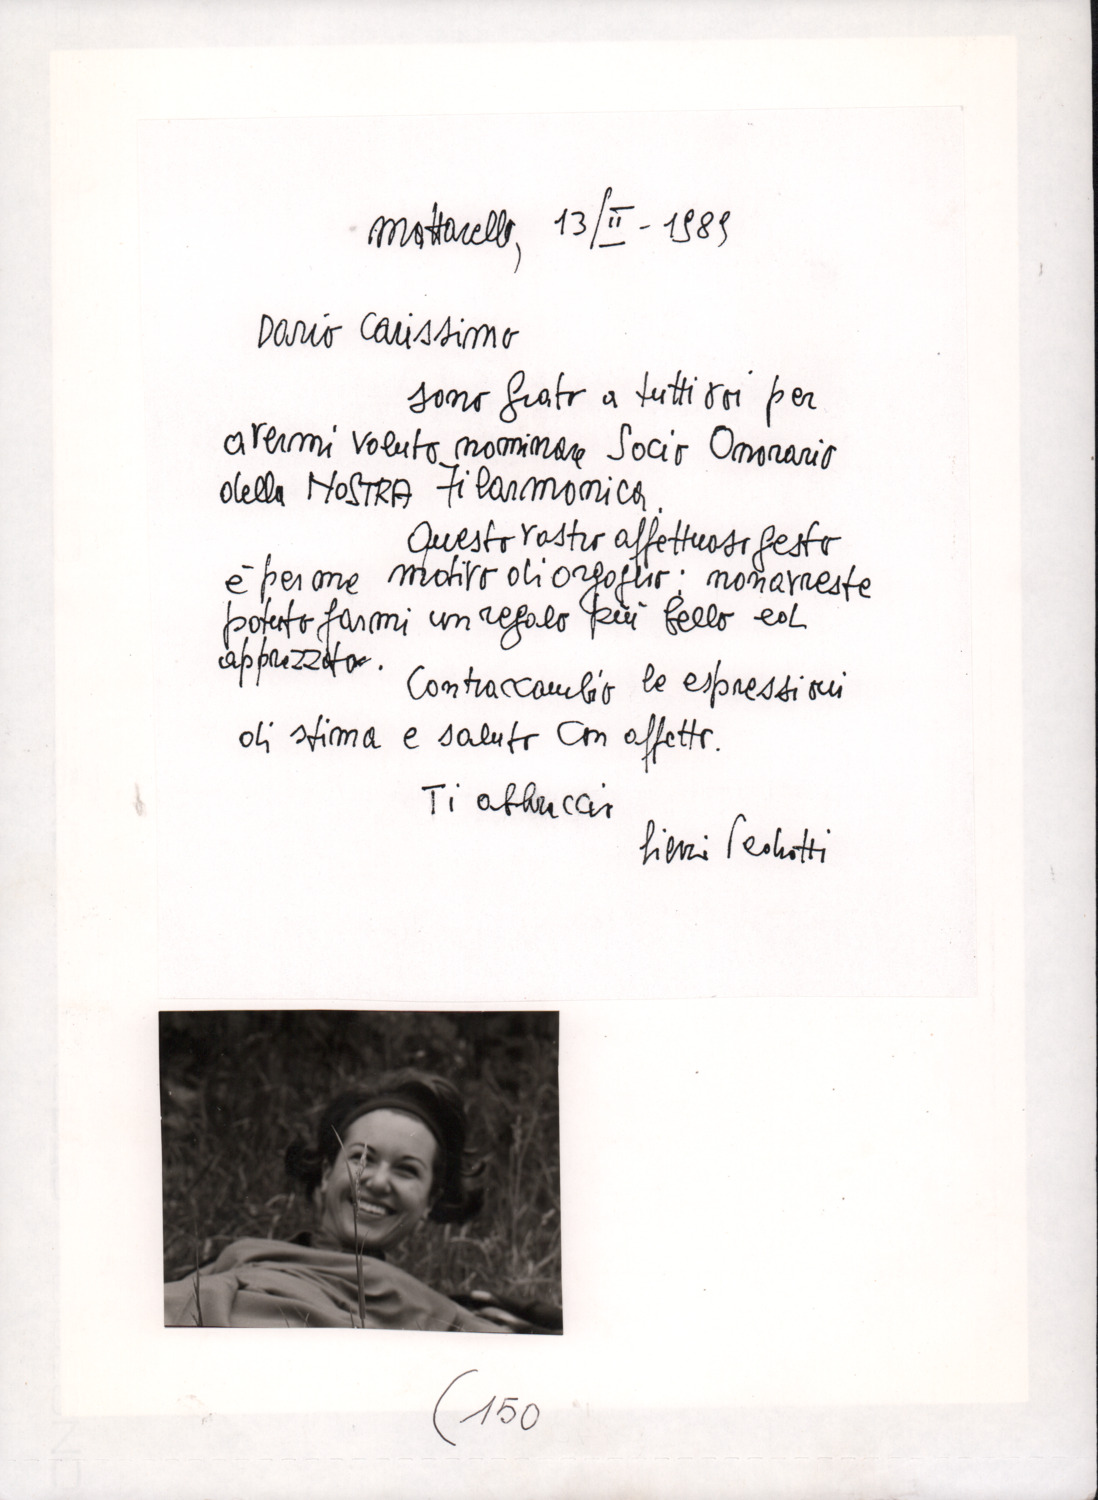 Mattarello, 13/II-1989
Dario Carissimo
sono grato a tutti voi per
avermi voluto nominare Socio Onorario
della NOSTRA Filarmonica.
Questo vostro affettuoso gesto
è per me motivo di orgoglio: non avreste
potuto farmi un regalo più bello ed
apprezzato.
Contraccambio le espressioni
di stima e saluto con affetto.
Ti abbraccio
(150